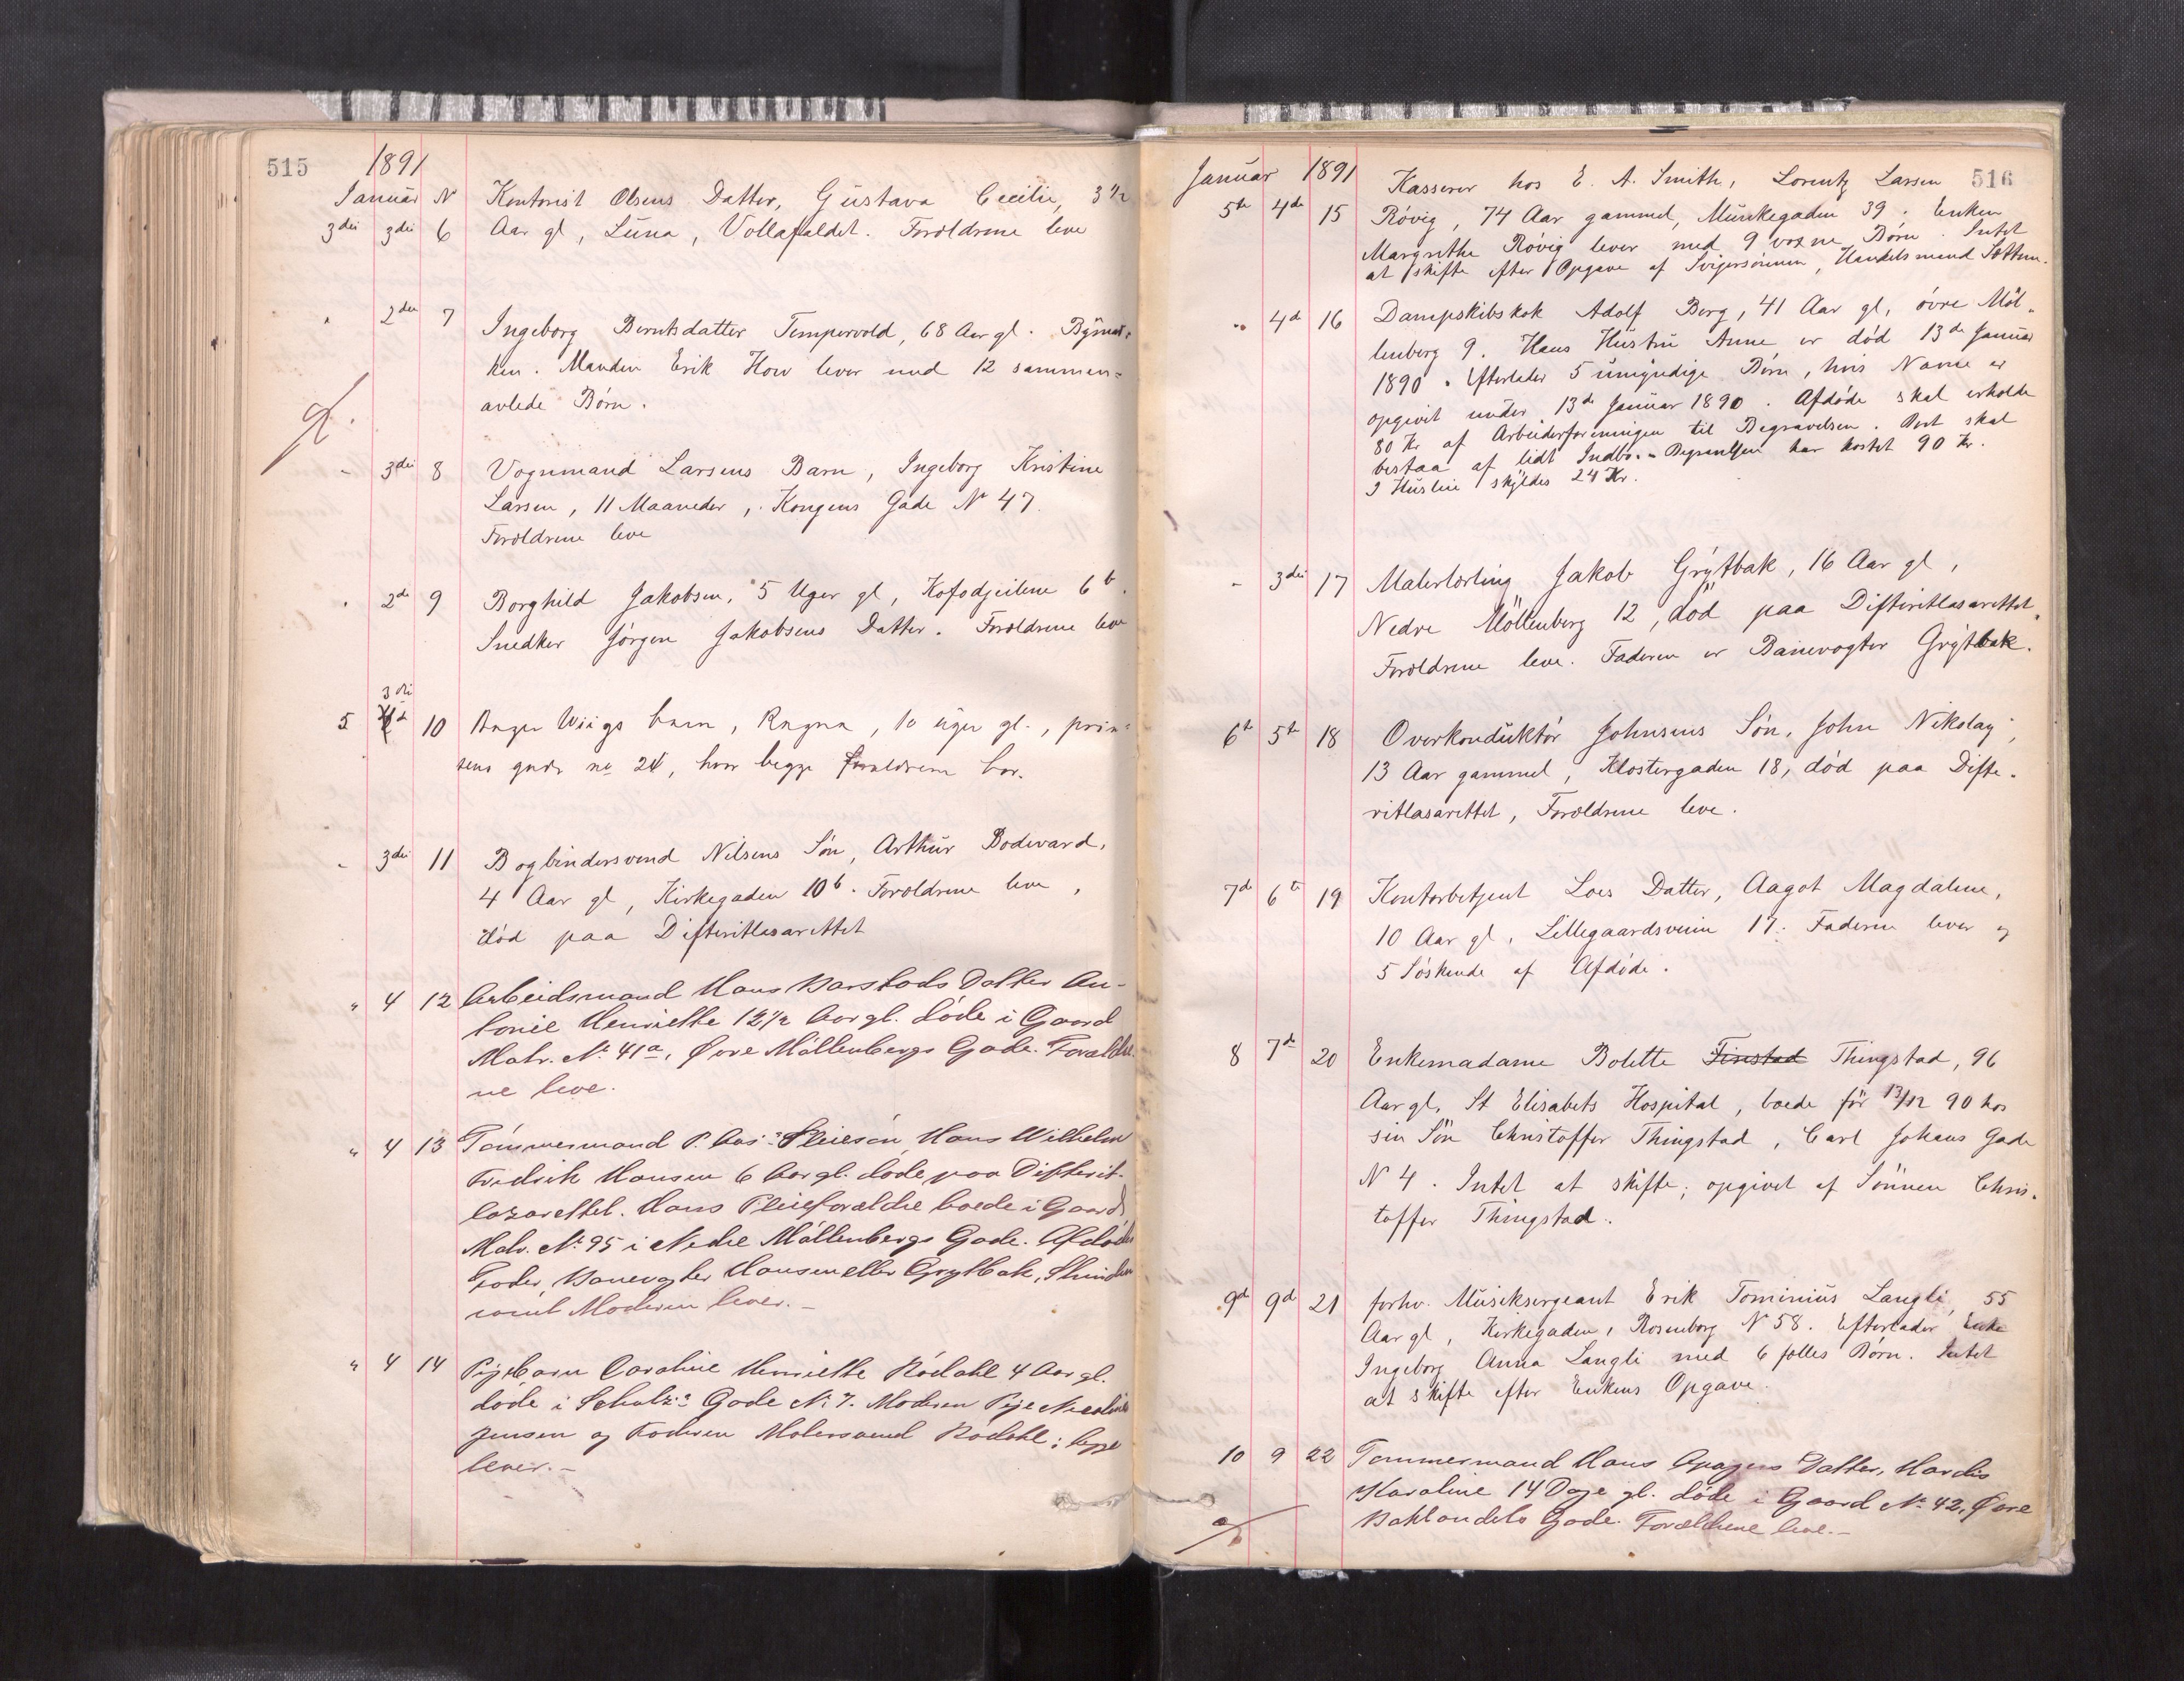 515
1891
Januar N Kontorist Olsens Datter, Gustava Cecilie, 3 1/2
3die 3die 6 Aar gl, Luna, Vollafaldet. Forældrene leve
" 2den 7 Ingeborg Berntsdatter Tempervold, 68 Aar gl. Bymar-
ken. Manden Erik How lever med 12 sammen=
avlede Børn.
- 3die 8 Vognmand Larsens Barn, Ingeborg Kristine
Larsen, 11 Maaneder, Kongens Gade N 47.
Forældrene leve
" 2de 9 Borghild Jakobsen, 5 Uger gl, Kofodgeilene 6 b.
Snedker Jørgen Jakobsens Datter. Forældrene leve
3die
5 10 Wiigs barn, Ragna, 10 uger gl., prin=
sens gade no 24, hvor begge forældrene bor.
- 3die 11 Bogbindersvend Nilsens Søn, Arthur Bodevard,
4 Aar gl, Kirkegaden 10 b. Forældrene leve,
død paa Difteritlasarettet
" 4 12 Arbeidsmand Hans Barstads Datter An-
tonie Henriette 12 1/2 Aar gl. døde i Gaard
Matr. No 41 a, Øvre Møllenbergs Gade. Forældre
ne leve.
" 4 13 Tømmermand P. Aas's Pleiesøn, Hans Wilhelm
Fredrik Hansen 6 Aar gl. døde paa Difterit-
lazarettet. Hans Pleieforældre boede i Gaard
Matr. No 95 i Nedre Møllenbergs Gade. Afdødes
Fader, Banevogter Hansen eller Grytbak,
samt Moderen lever.-
" 4 14 Pigebarn Caroline Henriette Rødahl 4 Aar gl.
døde i Schultz's Gade No 7. Moderen Pige Nicoline
Jensen og Faderen Malersvend Rødahl; begge
lever.-
516
Januar 1891 Kasserer hos E. A. Smith, Lorentz Larsen
5te 4de 15 Røvig, 74 Aar gammel, Munkegaden 39. Enken
Margrethe Røvig lever med 9 voxne Børn. Intet
at skifte efter Opgave af Svigersønnen, Handelsmand Sættem.
" 4d 16 Dampskibskok Adolf Berg, 41 Aar gl, øvre Møl-
lenberg 9. Hans Hustru Anne er død 13de Januar
1890. Efterlader 5 umyndige Børn, hvis Navne er
opgivet under 13de Januar 1890. Afdøde skal erholde
80 Kr af Arbeiderforeningen til Begravelsen. Boet skal
bestaa af lidt Indbo. - Begravelsen har kostet 90 Kr.
I Husleie skyldes 24 Kr.
- 3die 17 Malerlærling Jakob Grytbak, 16 Aar gl,
Nedre Møllenberg 12, død paa Difteritlasarettet.
Forældrene leve. Faderen er Banevogter Grytbak.
6te 5te 18 Overkonduktør Johnsens Søn, John Nikolay,
13 Aar gammel, Klostergaden 18, død paa Difte-
ritlasarettet, Forældrene leve.
7de 6te 19 Kontorbetjent Loes Datter, Aagot Magdalene,
10 Aar gl, Lillegaardsveien 17. Faderen lever og
5 Søskende af Afdøde.
8 7de 20 Enkemadame Bolette Finstad Thingstad, 96
Aar gl, St Elisabets Hospital, boede før 13/12 90 hos
sin Søn Christoffer Thingstad, Carl Johans Gade
N 4. Intet at skifte; opgivet af Sønnen Chris-
toffer Thingstad.
9d 9d 21 forhv. Musiksergeant Erik Tominius Langli, 55
Aar gl, Kirkegaden, Rosenborg N 58. Efterlader Enke
Ingeborg Anna Langli med 6 fælles Børn. Intet
at skifte efter Enkens Opgave.
10 9 22 Tømmermand Hans Datter, Hardis
Karoline 14 Dage gl. døde i Gaard No 42, Øvre
Baklandets Gade. Forældrene leve.-